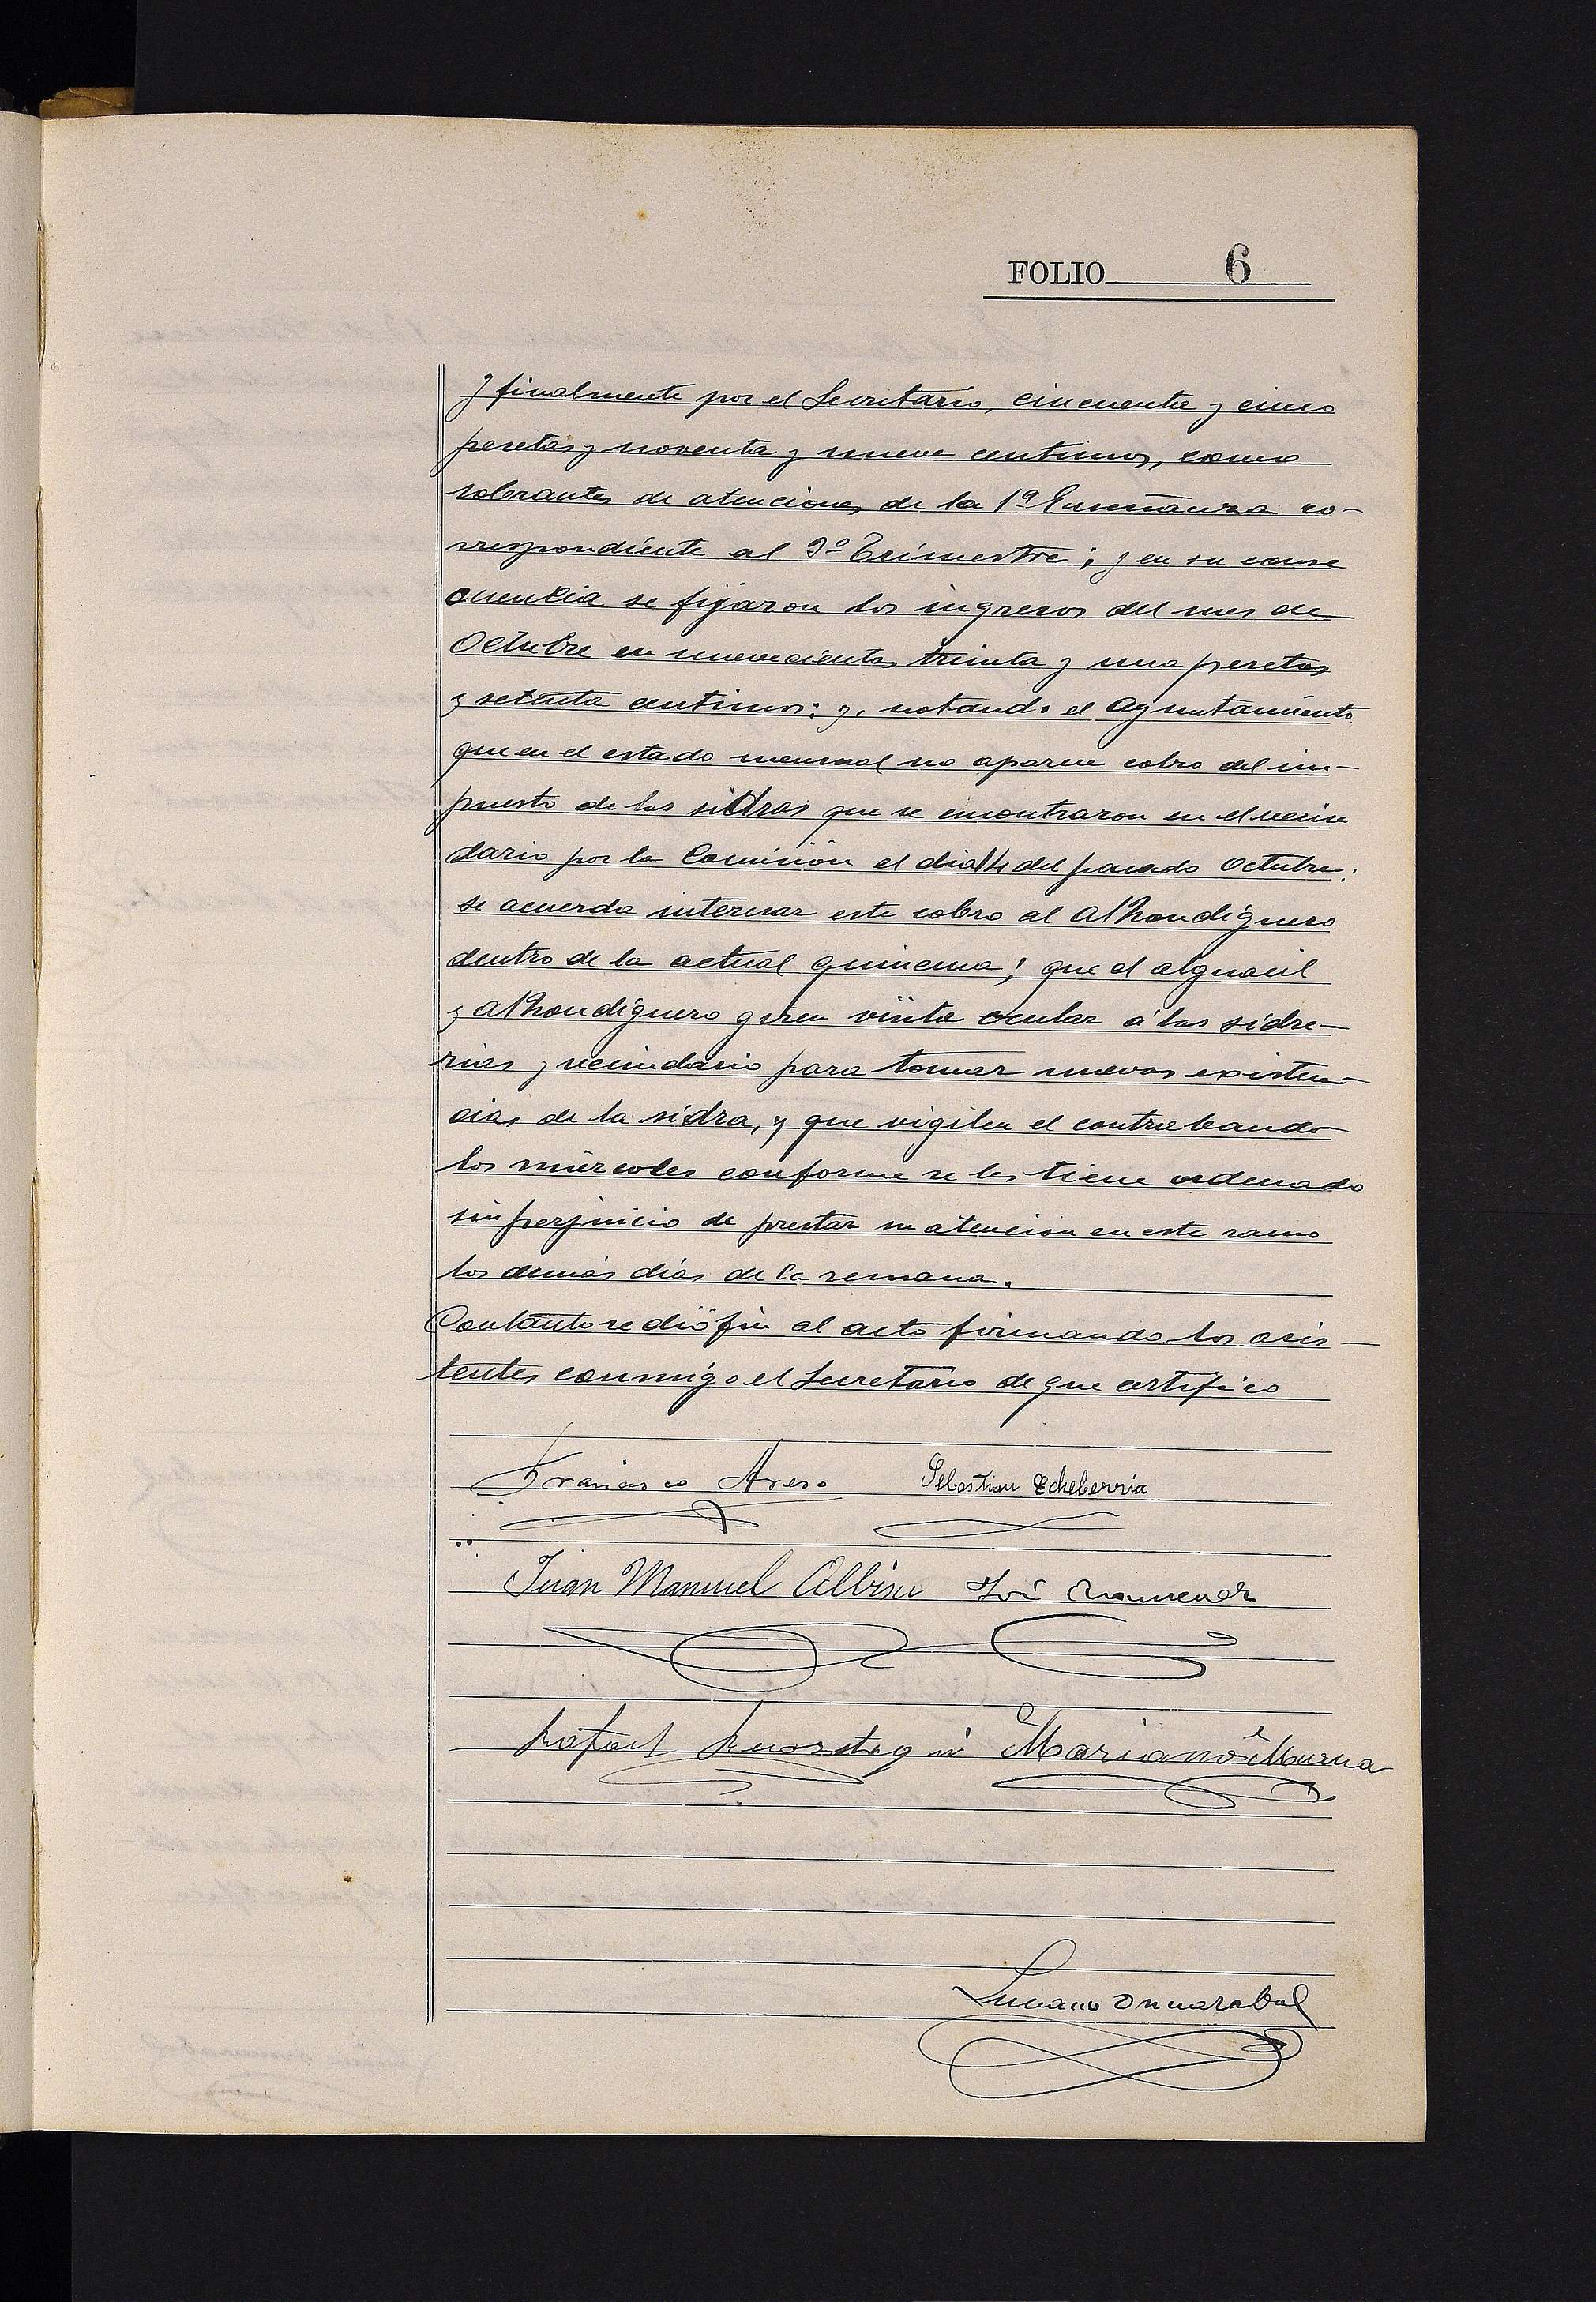 FOLIO 6
y finalmente por el Secretario, cincuenta y cinco
pesetas y noventa y nueve centimos, como
sobrantes de atenciones de la 1ª Enseñanza co-
rrespondiente al 3º Trimestre; y en su conse
cuencia se fijaron los ingresos del mes de
Octubre en nuevecientas treinta y una pesetas
y setenta centimos: y, notando el Ayuntamiento
que en el estado mensual no aparece cobro del im-
puesto de las sidras que se encontraron en el vecin
dario por la Comisión el dia 14 del pasado Octubre:
se acuerda interesar este cobro al Alhondiguero
dentro de la actual quincena; que el alguacil
y Alhondiguero giren visita ocular á las sidre-
rias y vecindario para tomar nuevas existen-
cias de la sidra, y que vigilen el contrabando
los miércoles conforme se les tiene ordenado
sin perjuicio de prestar su atención en este ramo
los demás días de la semana.
Con tanto se dió fin al acto firmando los asis-
tentes conmigo el Secretario de que certifico
Francisco Areso Sebastian Echeberria
Juan Manuel Albisu José
Rafael Mariano
Luciano Ormazabal